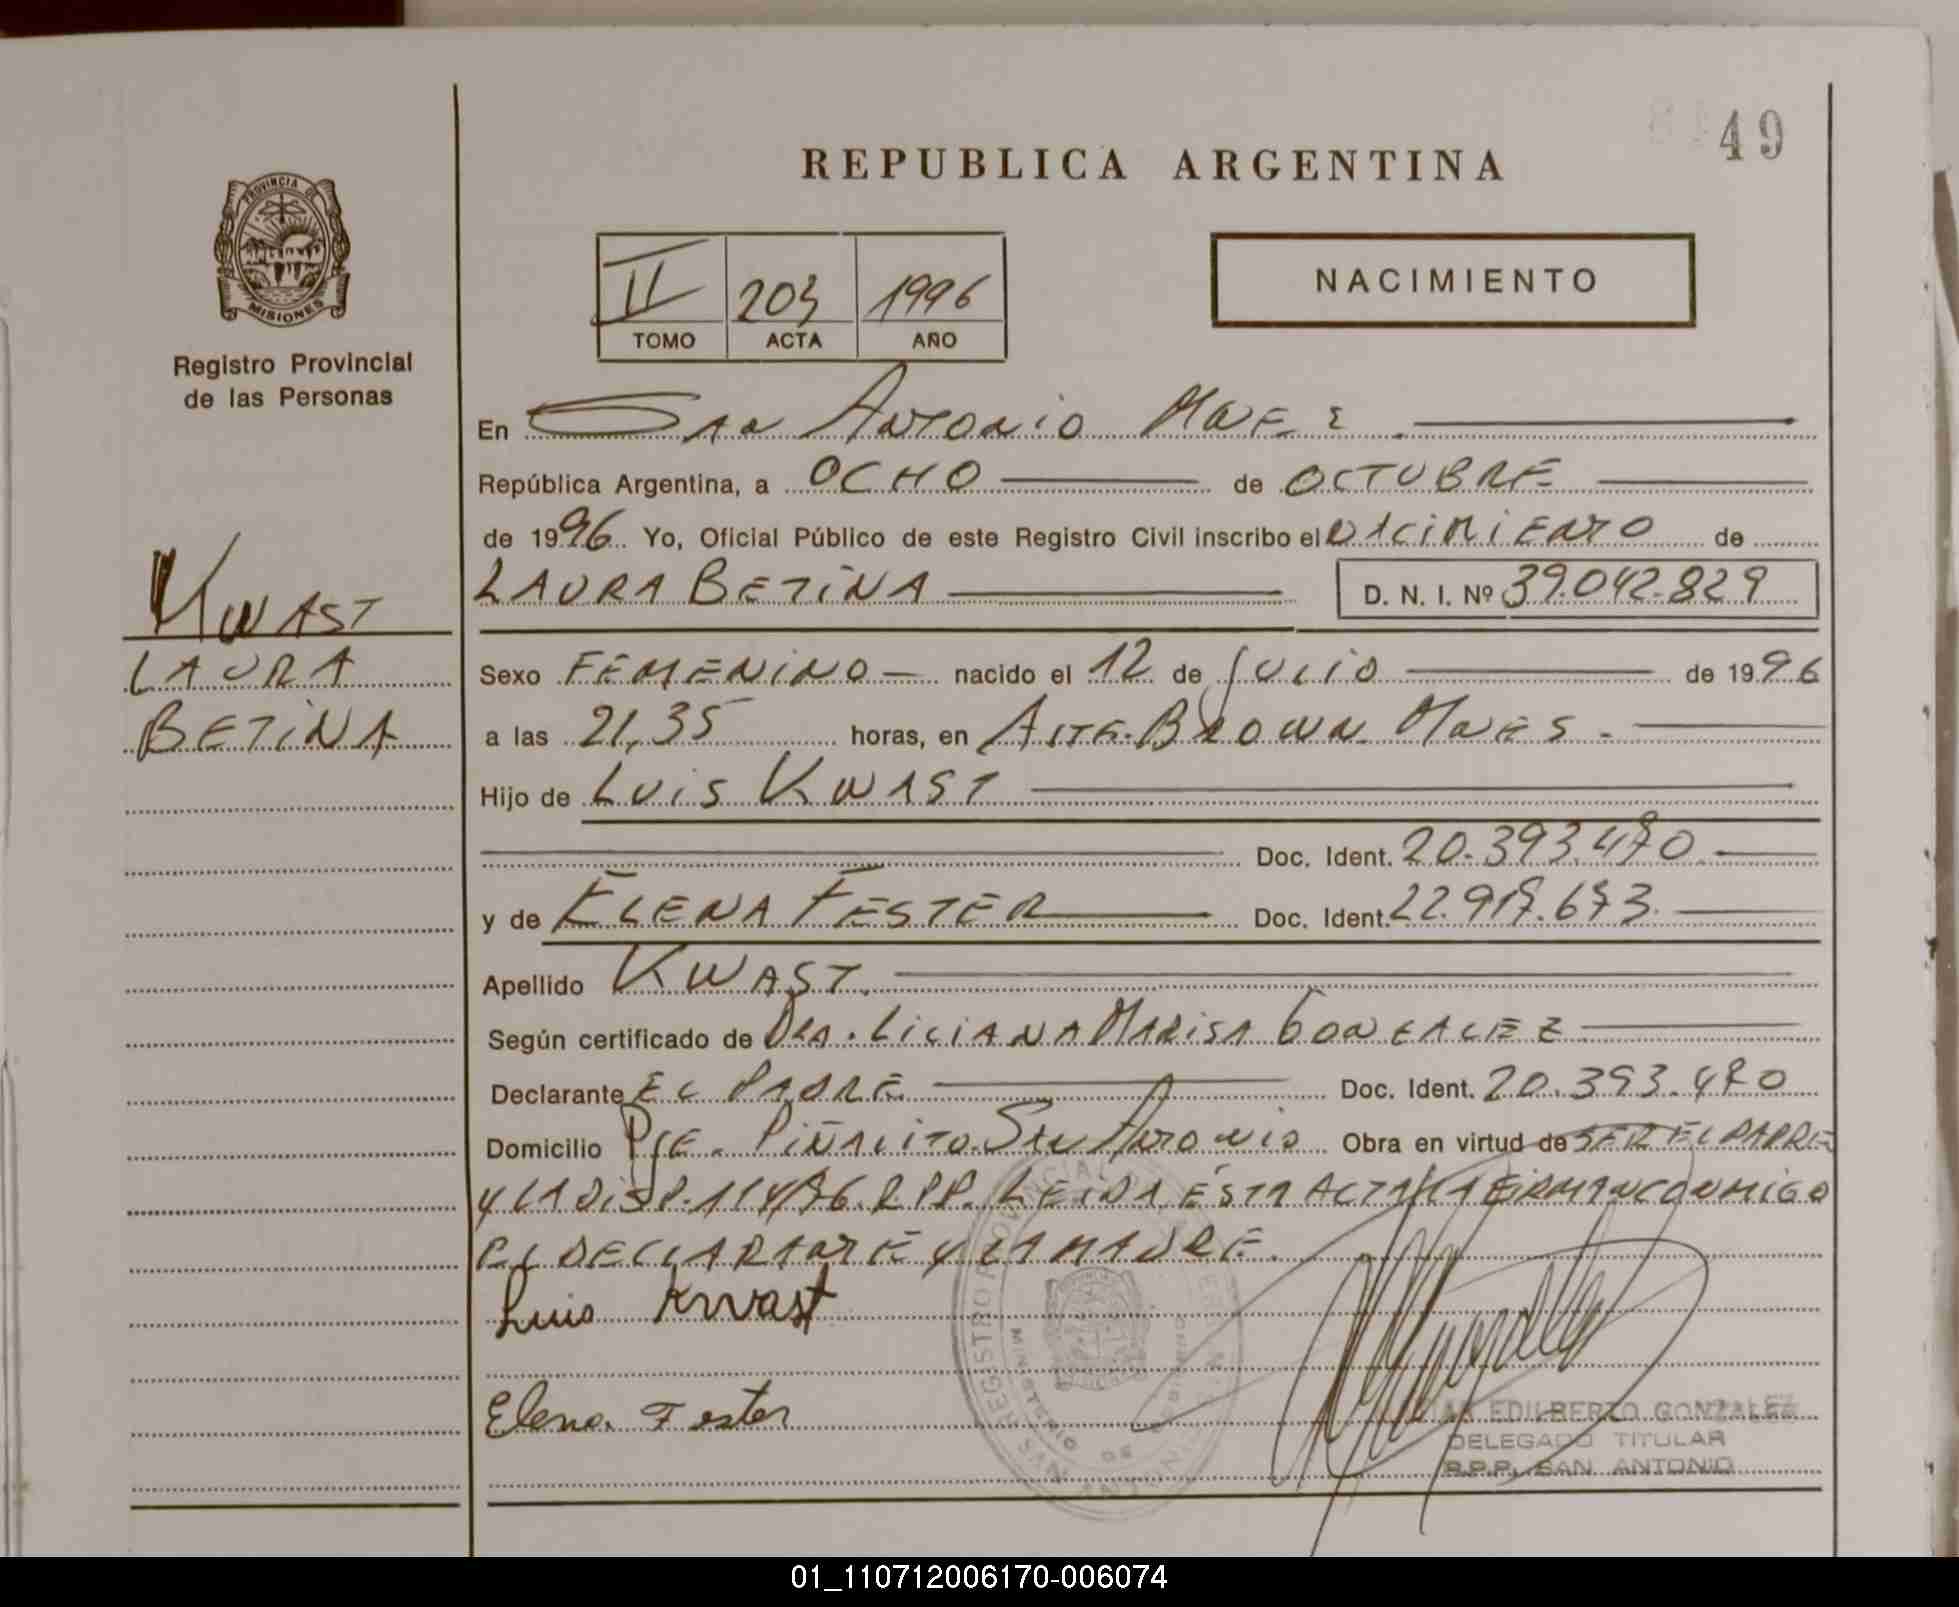 49
REPUBLICA ARGENTINA
PROVINCIA DE
MISIONES
Registro Provincial
de las Personas
II 203 1996
TOMO ACTA AÑO
NACIMIENTO
En San Antonio Mnes
República Argentina, a OCHO de OCTUBRE
de 1996 Yo, Oficial Público de este Registro Civil inscribo el nacimiento de
LAURA BETINA D. N. I. Nº 39.042.829
KWAST
LAURA
BETINA
Sexo FEMENINO nacido el 12 de Julio de 1996
a las 21,35 horas, en Alte. Brown Mnes.
Hijo de Luis KWAST
Doc. Ident. 20.393.470
y de ELENA FESTER Doc. Ident. 22.917.673
Apellido KWAST
Según certificado de Dra. Liliana Marisa Gonzalez
Declarante EL PADRE Doc. Ident. 20.393.470
Domicilio Pje. Piñalito San Antonio Obra en virtud de SER EL PADRE
y LA Disp. 114/96. R.P.P. LEIDA ESTA ACTA LA FIRMAN CONMIGO
EL DECLARANTE y LA MADRE.
Luis Kwast
Elena Fester
REGISTRO PROVINCIAL
MINISTERIO DE
EDILBERTO GONZALEZ
DELEGADO TITULAR
R.P.P. SAN ANTONIO
01_110712006170-006074